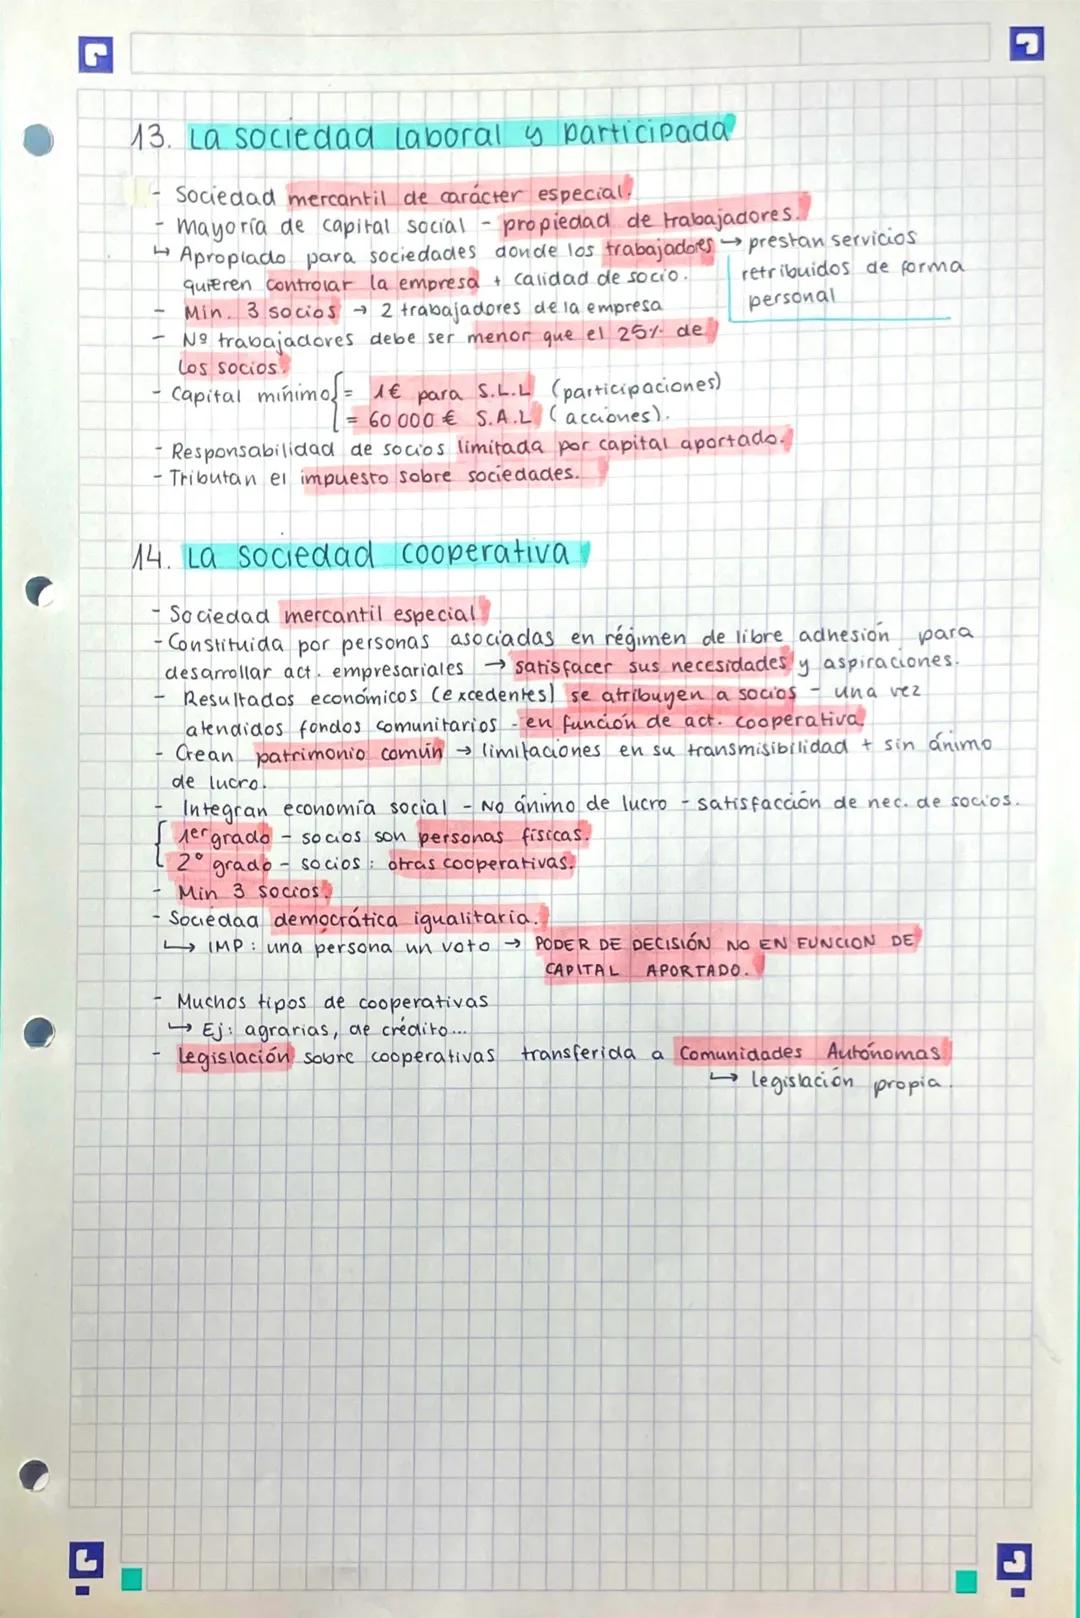 13. La sociedad laboral y participada
- Sociedad mercantil de carácter especial.
- Mayoría de capital social - propiedad de trabajadores.
↳ Apropiado para sociedades donde los trabajadores → prestan servicios
quieren controlar la empresa + calidad de socio. retribuidos de forma
personal
- Min. 3 socios → 2 trabajadores de la empresa
- Nº trabajadores debe ser menor que el 25% de
los socios.
- Capital mínimo { = 1€ para S.L.L (participaciones)
= 60 000 € S.A.L (acciones).
- Responsabilidad de socios limitada por capital aportado.
- Tributan el impuesto sobre sociedades.
14. La sociedad cooperativa
- Sociedad mercantil especial
- Constituida por personas asociadas en régimen de libre adhesión para
desarrollar act. empresariales → satisfacer sus necesidades y aspiraciones.
- Resultados económicos (excedentes) se atribuyen a socios - una vez
atendidos fondos comunitarios - en función de act. cooperativa.
- Crean patrimonio común → limitaciones en su transmisibilidad + sin ánimo
de lucro.
- Integran economía social - No ánimo de lucro - satisfacción de nec. de socios.
{ 1er grado - socios son personas físicas.
2º grado - socios: otras cooperativas.
- Min 3 socios.
- Sociedad democrática igualitaria.
↳ IMP: una persona un voto → PODER DE DECISIÓN NO EN FUNCION DE
CAPITAL APORTADO.
- Muchos tipos de cooperativas
↳ Ej: agrarias, de crédito...
- Legislación sobre cooperativas transferida a Comunidades Autónomas
↳ legislación propia.